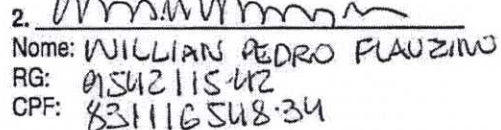 2.
Nome: WILLIAN PEDRO FLAUZINO
RG: 9542115-42
CPF: 831116548-34